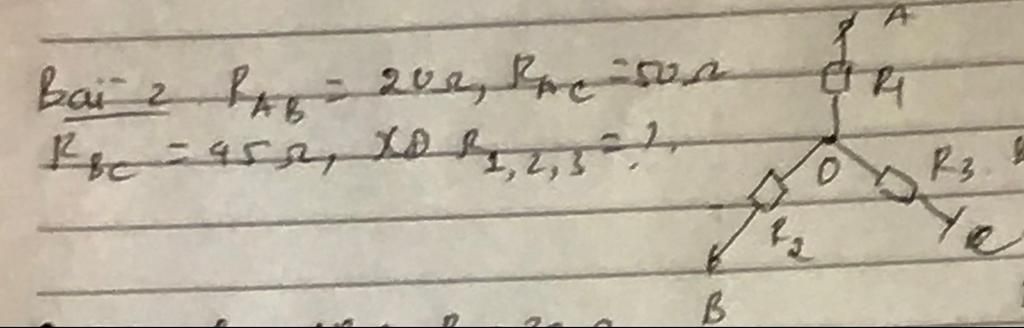 Bài 2 R_AB = 20Ω, R_AC = 50Ω
R_BC = 45Ω, XĐ R_1,2,3 = ?.
A
R_1
O
R_3
R_2
C
B